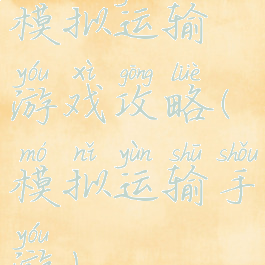 模拟运输
yóu xì gōng lüè
游戏攻略(
mó nǐ yùn shū shǒu
模拟运输手
yóu
游)